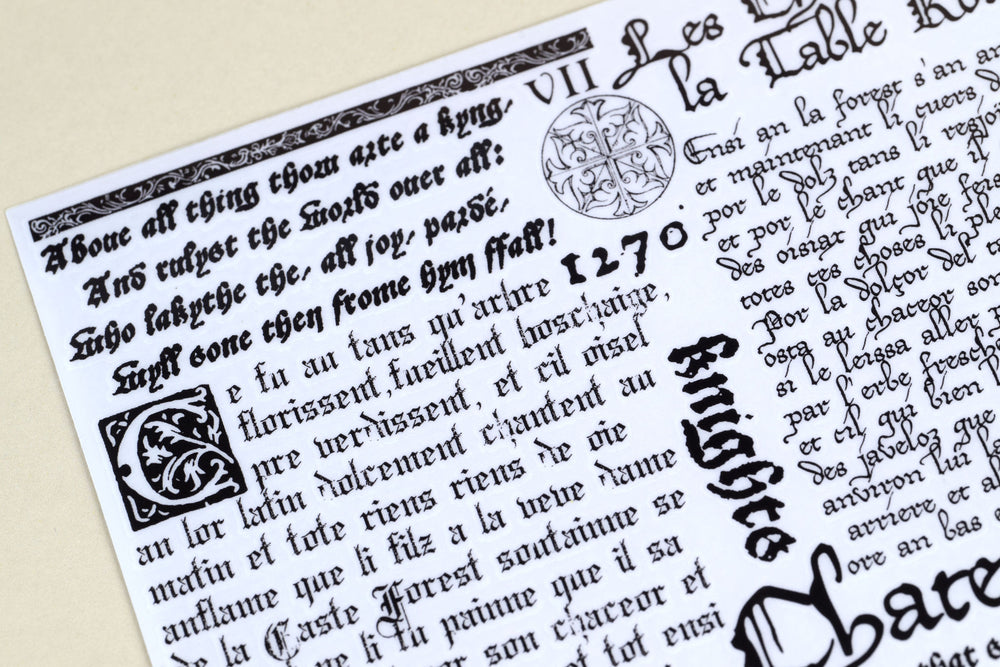 Aboue all thing thow arte a kyng,
And rulyst the world ouer all:
Who lakythe the, all joy, pardé,
Wyll sone then frome hym ffall!
1270
Ce fu au tans qu'arbre
florissent, fueillent boschaige,
pre verdissent, et cil oisel
an lor latin dolcement chantent au
matin et tote riens riens de oie
anflame que li filz a la veve dame
de la Gaste Forest soutainne se
li fu painne que il sa
son chaceor et
tot ensi
knighte
VII
Les
la Table
Ensi an la forest s'an
et maintenant li cuers
por le dolz tans li resjoï
et por le chant que il
des oisiax qui joie
totes ces choses li
Por la dolçor del
osta au chaceor son
si le leissa aller
par l'erbe fresch
et cil qui bien
des javeloz que
anviron lui
arriere et
ore an bas